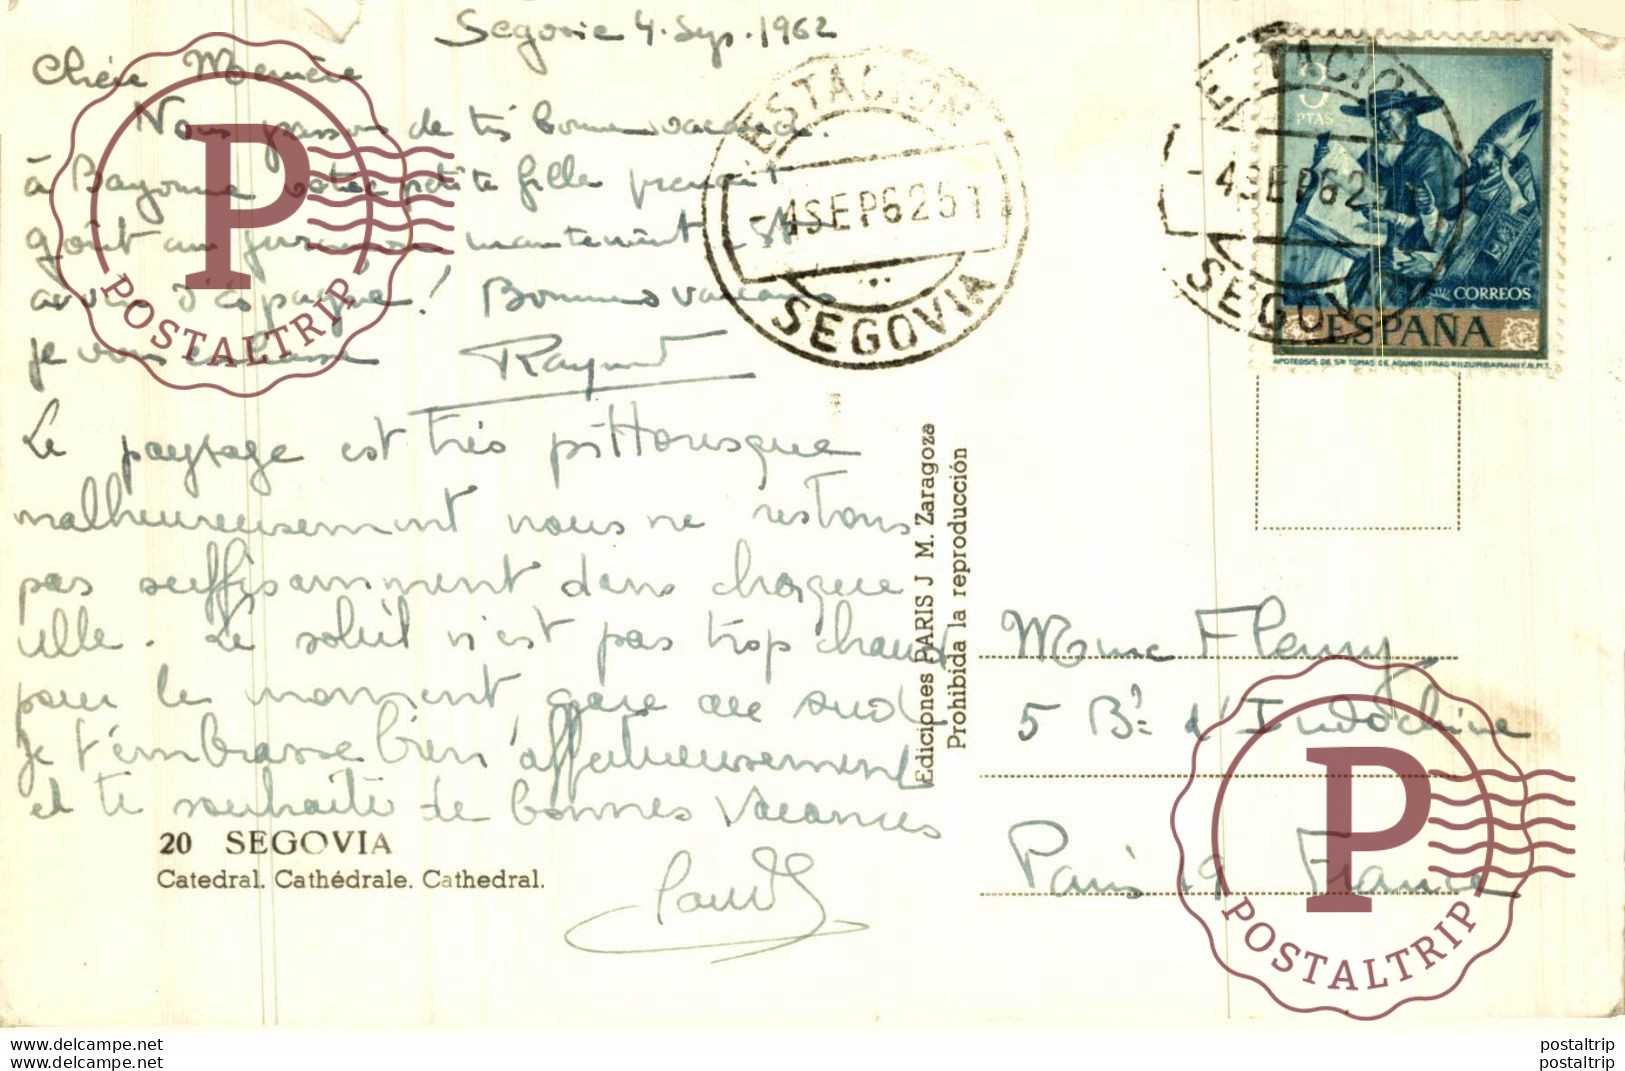 Segovie 4. Sep. 1962
Chère Mémère
Nous passons de très bonnes vacances.
à Bayonne votre petite fille prenait
goût au jurançon maintenant
d'espagne! Bonnes vacances
je vous embrasse
Le paysage est très pittoresque
malheureusement nous ne restons
pas suffisamment dans chaque
ville. Le soleil n'est pas trop chaud
pour le moment, gare au sud
je t'embrasse bien affectueusement
et te souhaite de bonnes vacances
20 SEGOVIA
Catedral. Cathédrale. Cathedral.
Ediciones PARIS J M. Zaragoza
Prohibida la reproducción
ESTACION
-4SEP6251
SEGOVIA
ESTACION
-4SEP62
SEGOVIA
3
PTAS
CORREOS
ESPAÑA
APOTEOSIS DE STO TOMAS DE AQUINO (FRAG.) (ZURBARAN) F.N.M.T.
Mme Fleury
5 Bd d'Indochine
Paris 19 France
P
POSTALTRIP
P
POSTALTRIP
www.delcampe.net
www.delcampe.net
postaltrip
postaltrip